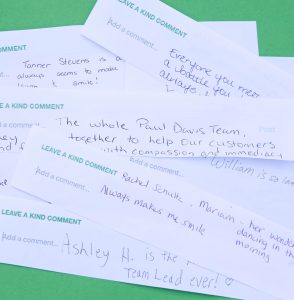 LEAVE A KIND COMMENT
Add a comment...
Everyone you meet
always
Tanner Stevens is a
always seems to make
smile!
LEAVE A KIND COMMENT
Add a comment...
Post
The whole Paul Davis Team,
together to help our customers
with compassion and immediacy
William is so
LEAVE A KIND COMMENT
Add a comment...
Rachel Schultz, Mariam - her
Always makes me smile
dancing in the
morning
LEAVE A KIND COMMENT
Add a comment...
Ashley H. is the
Team Lead ever!